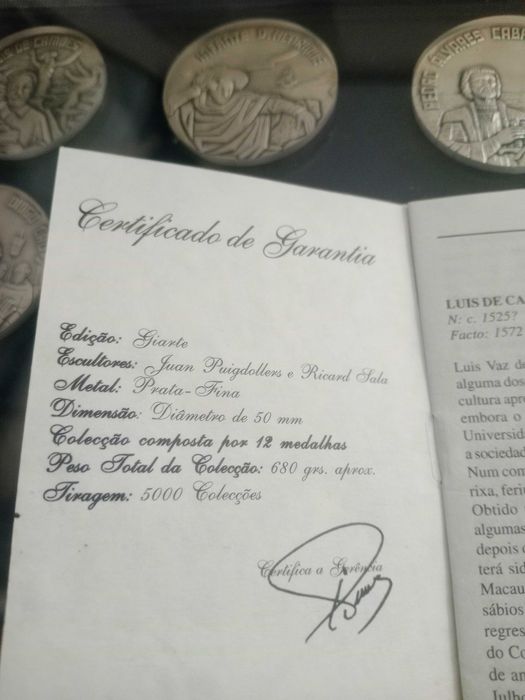 DE CAMÕES
INFANTE D. HENRIQUE
PEDRO ÁLVARES CABR
Certificado de Garantia
Edição: Giarte
Escultores: Juan Puigdollers e Ricard Sala
Metal: Prata-Fina
Dimensão: Diâmetro de 50 mm
Colecção composta por 12 medalhas
Peso Total da Colecção: 680 grs. aprox.
Tiragem: 5000 Colecções
Certifica a Gerência
LUIS DE CA
N: c. 1525?
Facto: 1572
Luis Vaz de
alguma dos
cultura apre
embora o
Universid
a sociedad
Num con
rixa, feriu
Obtido
algumas
depois d
terá sid
Macau
sábios
regres
do Co
de an
Julho